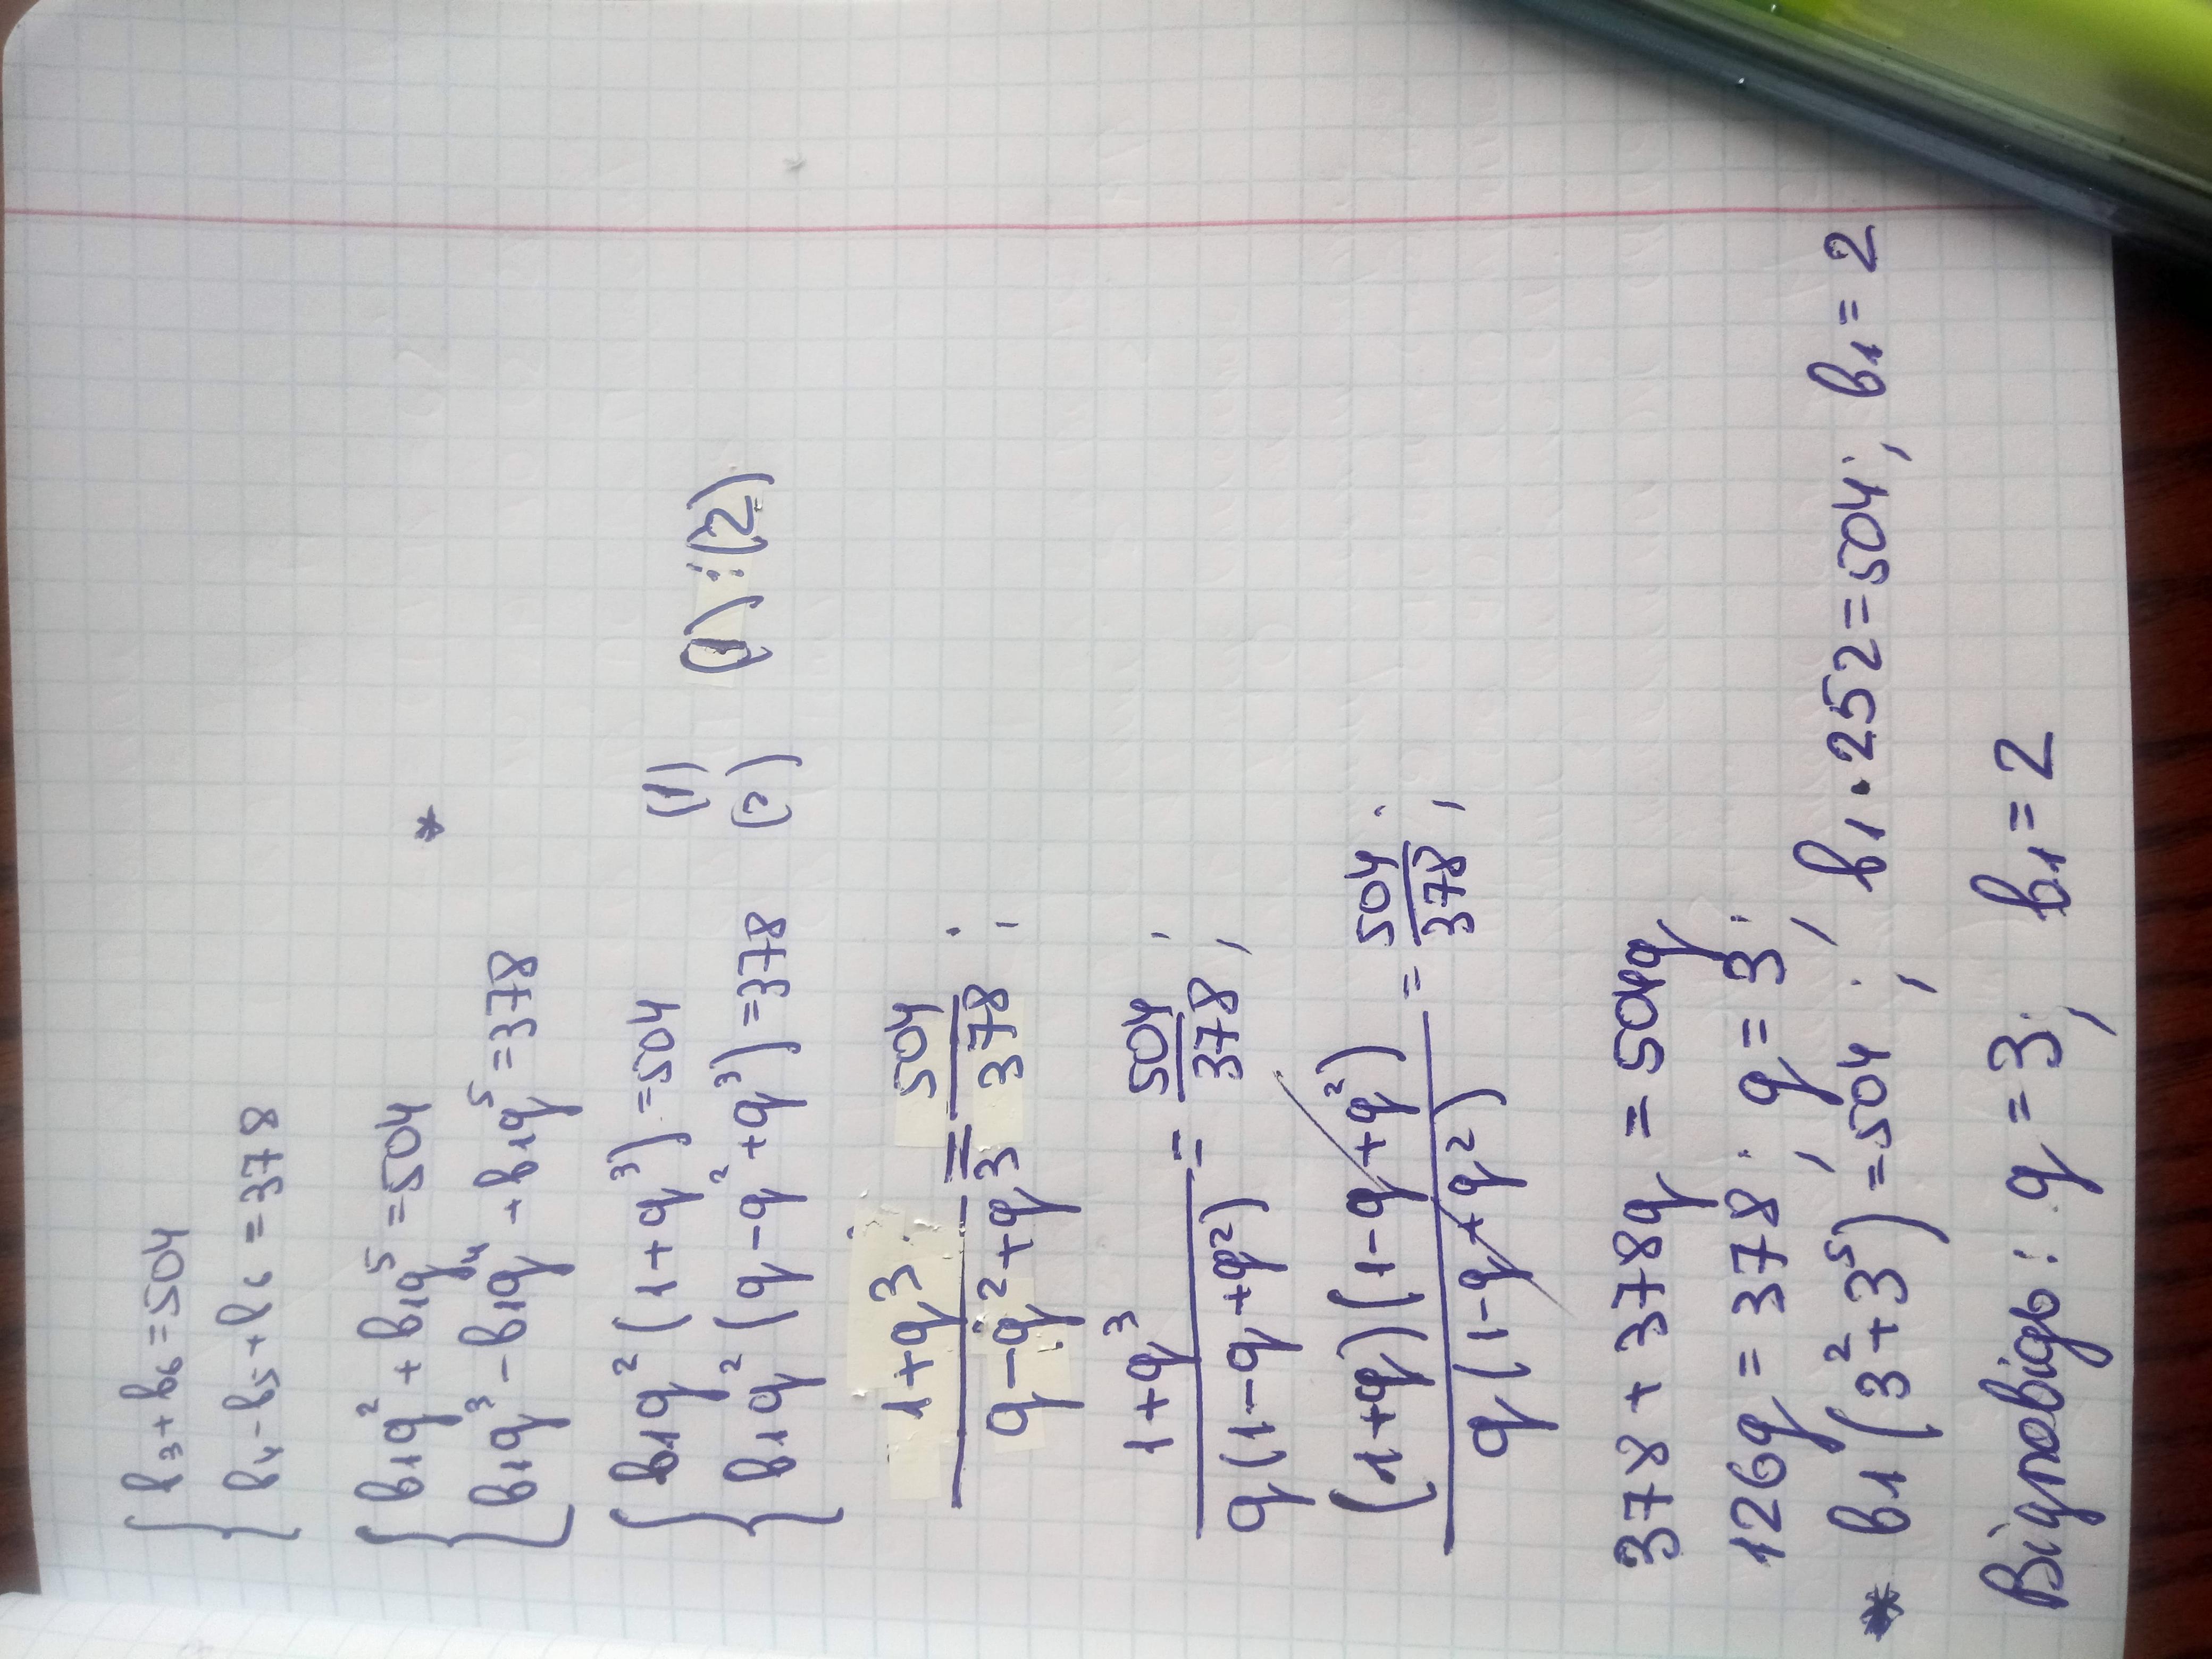 { b₃ + b₆ = 504
b₄ - b₅ + b₆ = 378
{ b₁q² + b₁q⁵ = 504 *
b₁q³ - b₁q⁴ + b₁q⁵ = 378
{ b₁q² (1 + q³) = 504 (1)
b₁q² (q - q² + q³) = 378 (2) (1) : (2)
(1 + q³) / (q - q² + q³) = 504/378 ;
(1 + q³) / (q (1 - q + q²)) = 504/378 ;
((1 + q) (1 - q + q²)) / (q (1 - q + q²)) = 504/378 ;
378 + 378q = 504q
126q = 378 ; q = 3 ;
* b₁ (3² + 3⁵) = 504 ; b₁ · 252 = 504 ; b₁ = 2
Відповідь: q = 3 ; b₁ = 2